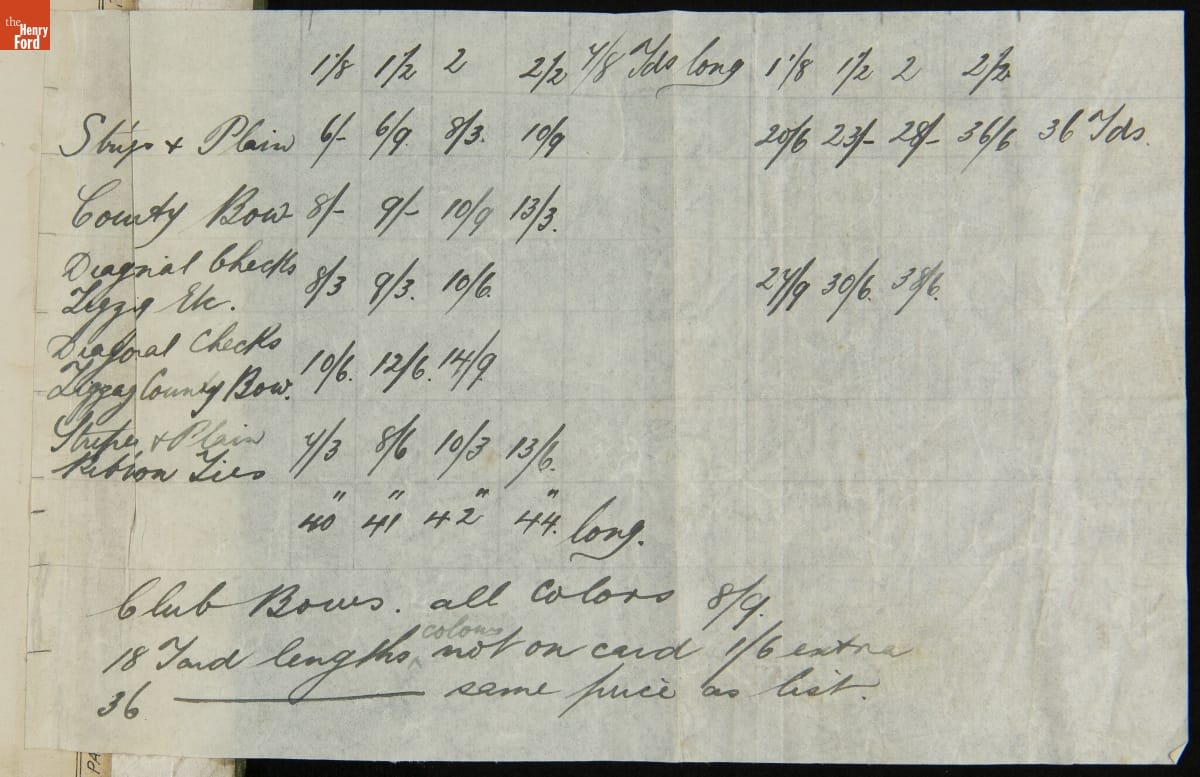 the Henry Ford
1 1/8 1 1/2 2 2 1/2 7/8 Yds long 1 1/8 1 1/2 2 2 1/2
Strips + Plain 6/- 6/9 8/3. 10/9 20/6 23/- 28/- 36/6 36 Yds.
County Bow 8/- 9/- 10/9 13/3.
Diagnial Checks
Zigzg Etc. 8/3 9/3. 10/6. 27/9 30/6. 38/6.
Diagonal Checks
Zigzag County Bow. 10/6. 12/6. 14/9.
Stripes + Plain
Ribbon Ties 7/3 8/6 10/3 13/6.
40" 41" 42" 44." long.
Club Bows. all colors 8/9.
18 Yard lengths colours not on card 1/6 extra
36 ——— same price as list.
PA